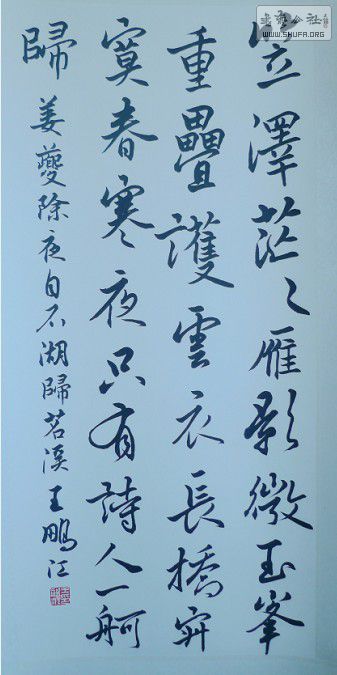 笠澤茫々雁影微玉峯
重疊護雲衣長橋寂
寞春寒夜只有詩人一舸
歸
姜夔除夜自石湖歸苕溪王鵬江
WWW.SHUFA.ORG